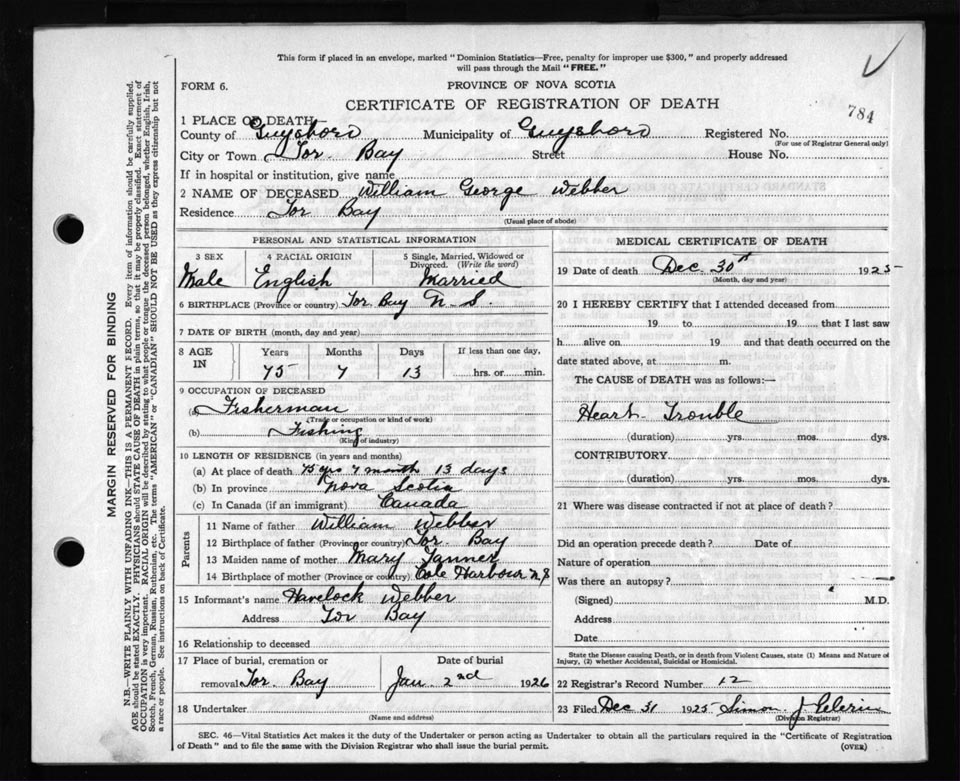 This form if placed in an envelope, marked "Dominion Statistics—Free, penalty for improper use $300," and properly addressed
will pass through the Mail "FREE."
FORM 6.
PROVINCE OF NOVA SCOTIA
CERTIFICATE OF REGISTRATION OF DEATH
784
1 PLACE OF DEATH—
County of Guysboro Municipality of Guysboro Registered No.
(For use of Registrar General only)
City or Town Tor Bay Street House No.
If in hospital or institution, give name
2 NAME OF DECEASED William George Webber
Residence Tor Bay
(Usual place of abode)
PERSONAL AND STATISTICAL INFORMATION
3 SEX 4 RACIAL ORIGIN 5 Single, Married, Widowed or Divorced. (Write the word)
Male English Married
6 BIRTHPLACE (Province or country) Tor Bay N. S.
7 DATE OF BIRTH (month, day and year)
8 AGE IN Years Months Days If less than one day,
75 7 13 hrs. or min.
9 OCCUPATION OF DECEASED
(a) Fisherman
(Trade or occupation or kind of work)
(b) Fishing
(Kind of industry)
10 LENGTH OF RESIDENCE (in years and months)
(a) At place of death 75 yrs 7 month 13 days
(b) In province Nova Scotia
(c) In Canada (if an immigrant) Canada
Parents
11 Name of father William Webber
12 Birthplace of father (Province or country) Tor Bay
13 Maiden name of mother Mary Tanner
14 Birthplace of mother (Province or country) Cole Harbour N.S
15 Informant's name Havelock Webber
Address Tor Bay
16 Relationship to deceased
17 Place of burial, cremation or Date of burial
removal Tor Bay Jan. 2nd 1926
18 Undertaker
(Name and address)
MEDICAL CERTIFICATE OF DEATH
19 Date of death Dec. 30th 1925
(Month, day and year)
20 I HEREBY CERTIFY that I attended deceased from
19 to 19 , that I last saw
h alive on 19 and that death occurred on the
date stated above, at m.
The CAUSE of DEATH was as follows:—
Heart Trouble
(duration) yrs. mos. dys.
CONTRIBUTORY
(duration) yrs. mos. dys.
21 Where was disease contracted if not at place of death?
Did an operation precede death? Date of
Nature of operation
Was there an autopsy?
(Signed) M.D.
Address
Date
State the Disease causing Death, or in death from Violent Causes, state (1) Means and Nature of
Injury, (2) whether Accidental, Suicidal or Homicidal.
22 Registrar's Record Number 12
23 Filed Dec 31 1925 Simon J Pelerin
(Division Registrar)
SEC. 46—Vital Statistics Act makes it the duty of the Undertaker or person acting as Undertaker to obtain all the particulars required in the "Certificate of Registration
of Death" and to file the same with the Division Registrar who shall issue the burial permit. (OVER)
MARGIN RESERVED FOR BINDING
N.B.—WRITE PLAINLY WITH UNFADING INK—THIS IS A PERMANENT RECORD. Every item of information should be carefully supplied.
AGE should be stated EXACTLY. PHYSICIANS should STATE CAUSE OF DEATH in plain terms, so that it may be properly classified. Exact statement of
OCCUPATION is very important. RACIAL ORIGIN will be described by stating to what people or tongue the deceased person belonged, whether English, Irish,
Scotch, French, German, Russian, Ruthenian, etc. The terms "AMERICAN" or "CANADIAN" SHOULD NOT BE USED as they express citizenship but not
a race or people. See instructions on back of Certificate.